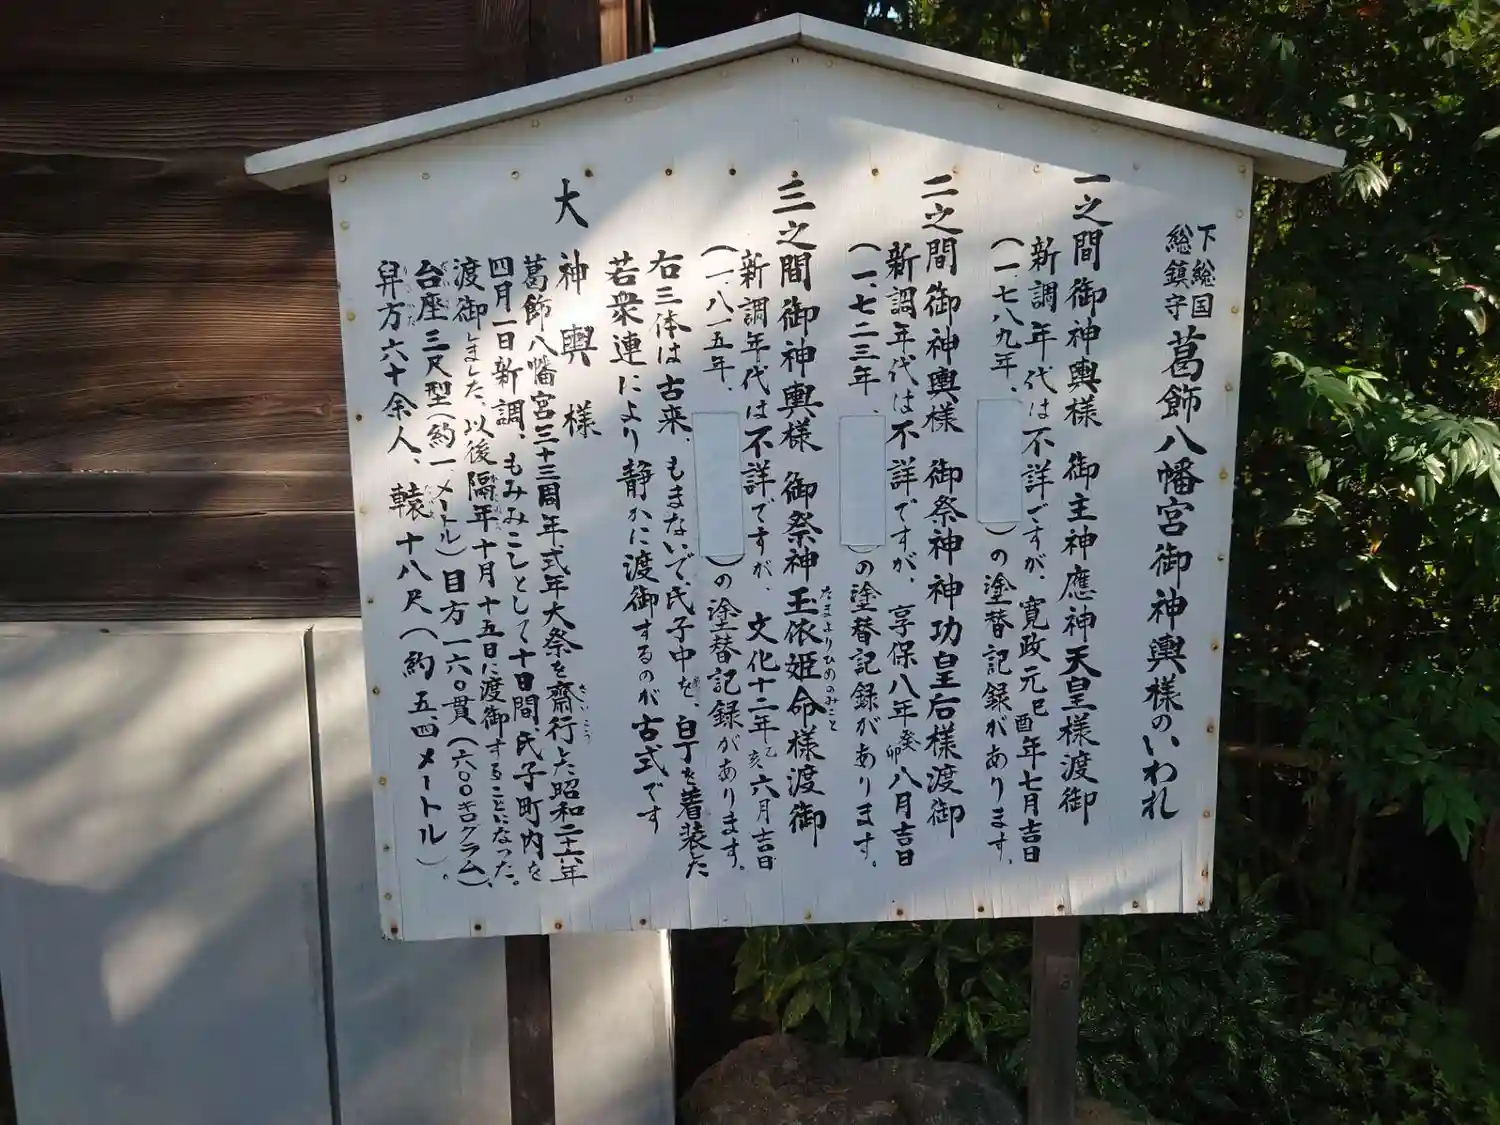 下総国
総鎮守
葛飾八幡宮御神輿様のいわれ
一之間御神輿様 御主神應神天皇様渡御
新調年代は不詳ですが、寛政元己酉年七月吉日
(一、七八九年、
)の塗替記録があります。
二之間御神輿様 御祭神神功皇后様渡御
新調年代は不詳ですが、享保八年癸卯八月吉日
(一、七二三年、
)の塗替記録があります。
三之間御神輿様 御祭神玉依姫命様渡御
たまよりひめのみこと
新調年代は不詳ですが、文化十二年乙亥六月吉日
(一、八一五年、
)の塗替記録があります。
右三体は古来、もまないで、氏子中を、白丁を着装した
若衆連により静かに渡御するのが古式です
大神輿様
葛飾八幡宮三十三周年式年大祭を齋行した昭和二十六年
さいこう
四月一日新調、もみみこしとして十日間、氏子町内を
渡御しました、以後隔年十月十五日に渡御することになった。
台座三尺型(約一メートル)目方一六〇貫(六〇〇キログラム)、
舁方六十余人、轅十八尺(約五四メートル)。